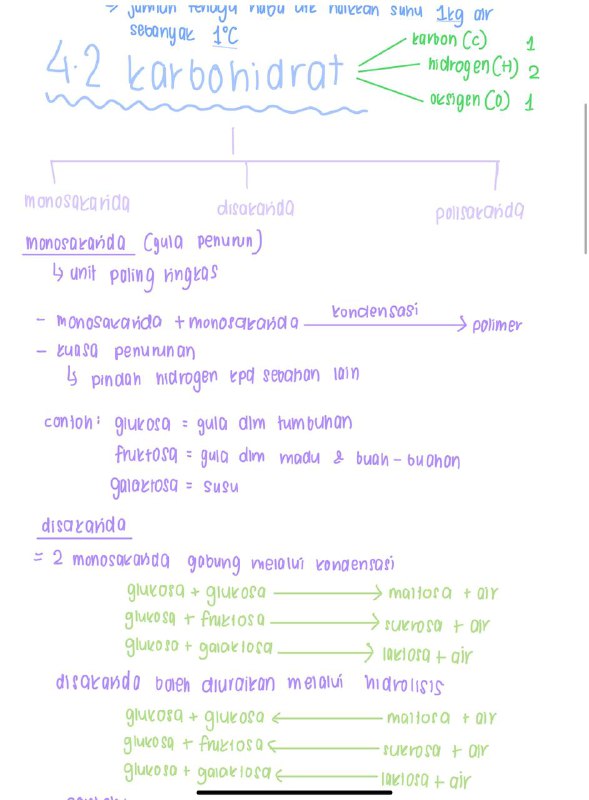 → jumlah tenaga haba utk naikkan suhu 1kg air
sebanyak 1°C
4.2 karbohidrat
karbon (C) 1
hidrogen (H) 2
oksigen (O) 1
monosakarida disakarida polisakarida
monosakarida (gula penurun)
↳ unit paling ringkas
- monosakarida + monosakarida kondensasi → polimer
- kuasa penurunan
↳ pindah hidrogen kpd sebahan lain
contoh: glukosa = gula dlm tumbuhan
fruktosa = gula dlm madu & buah-buahan
galaktosa = susu
disakarida
= 2 monosakarida gabung melalui kondensasi
glukosa + glukosa → maltosa + air
glukosa + fruktosa → sukrosa + air
glukosa + galaktosa → laktosa + air
disakarida boleh diuraikan melalui hidrolisis
glukosa + glukosa ← maltosa + air
glukosa + fruktosa ← sukrosa + air
glukosa + galaktosa ← laktosa + air